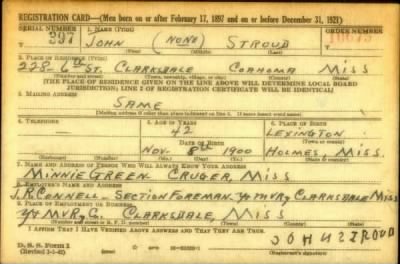 REGISTRATION CARD—(Men born on or after February 17, 1897 and on or before December 31, 1921)
SERIAL NUMBER
1. NAME (Print)
ORDER NUMBER
297
JOHN (NONE) STROUD
(First) (Middle) (Last)
2. PLACE OF RESIDENCE (Print)
228-6th ST. CLARKSDALE COAHOMA MISS
(Number and street) (Town, township, village, or city) (County) (State)
[THE PLACE OF RESIDENCE GIVEN ON THE LINE ABOVE WILL DETERMINE LOCAL BOARD
JURISDICTION; LINE 2 OF REGISTRATION CERTIFICATE WILL BE IDENTICAL]
3. MAILING ADDRESS
SAME
[Mailing address if other than place indicated on line 2. If same insert word same]
4. TELEPHONE
5. AGE IN YEARS
42
6. PLACE OF BIRTH
LEXINGTON
(Town or county)
DATE OF BIRTH
NOV. 8th 1900
HOLMES, MISS.
(Exchange) (Number) (Mo.) (Day) (Yr.) (State or country)
7. NAME AND ADDRESS OF PERSON WHO WILL ALWAYS KNOW YOUR ADDRESS
MINNIE GREEN CRUGER, MISS
8. EMPLOYER'S NAME AND ADDRESS
J.R. CONNELL - SECTION FOREMAN. Y&MVRy CLARKSDALE MISS
9. PLACE OF EMPLOYMENT OR BUSINESS
Y&MVRy Co. CLARKSDALE, MISS
(Number and street or R. F. D. number) (Town) (County) (State)
I AFFIRM THAT I HAVE VERIFIED ABOVE ANSWERS AND THAT THEY ARE TRUE.
D. S. S. Form 1
(Revised